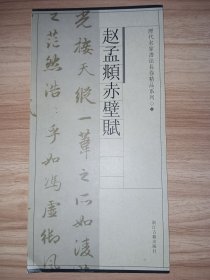 歷代名家書法長卷精品系列
赵孟頫赤壁賦
光接天縱一葦之所如淩
之茫然浩〻乎如馮虛御風
浙江古籍出版社